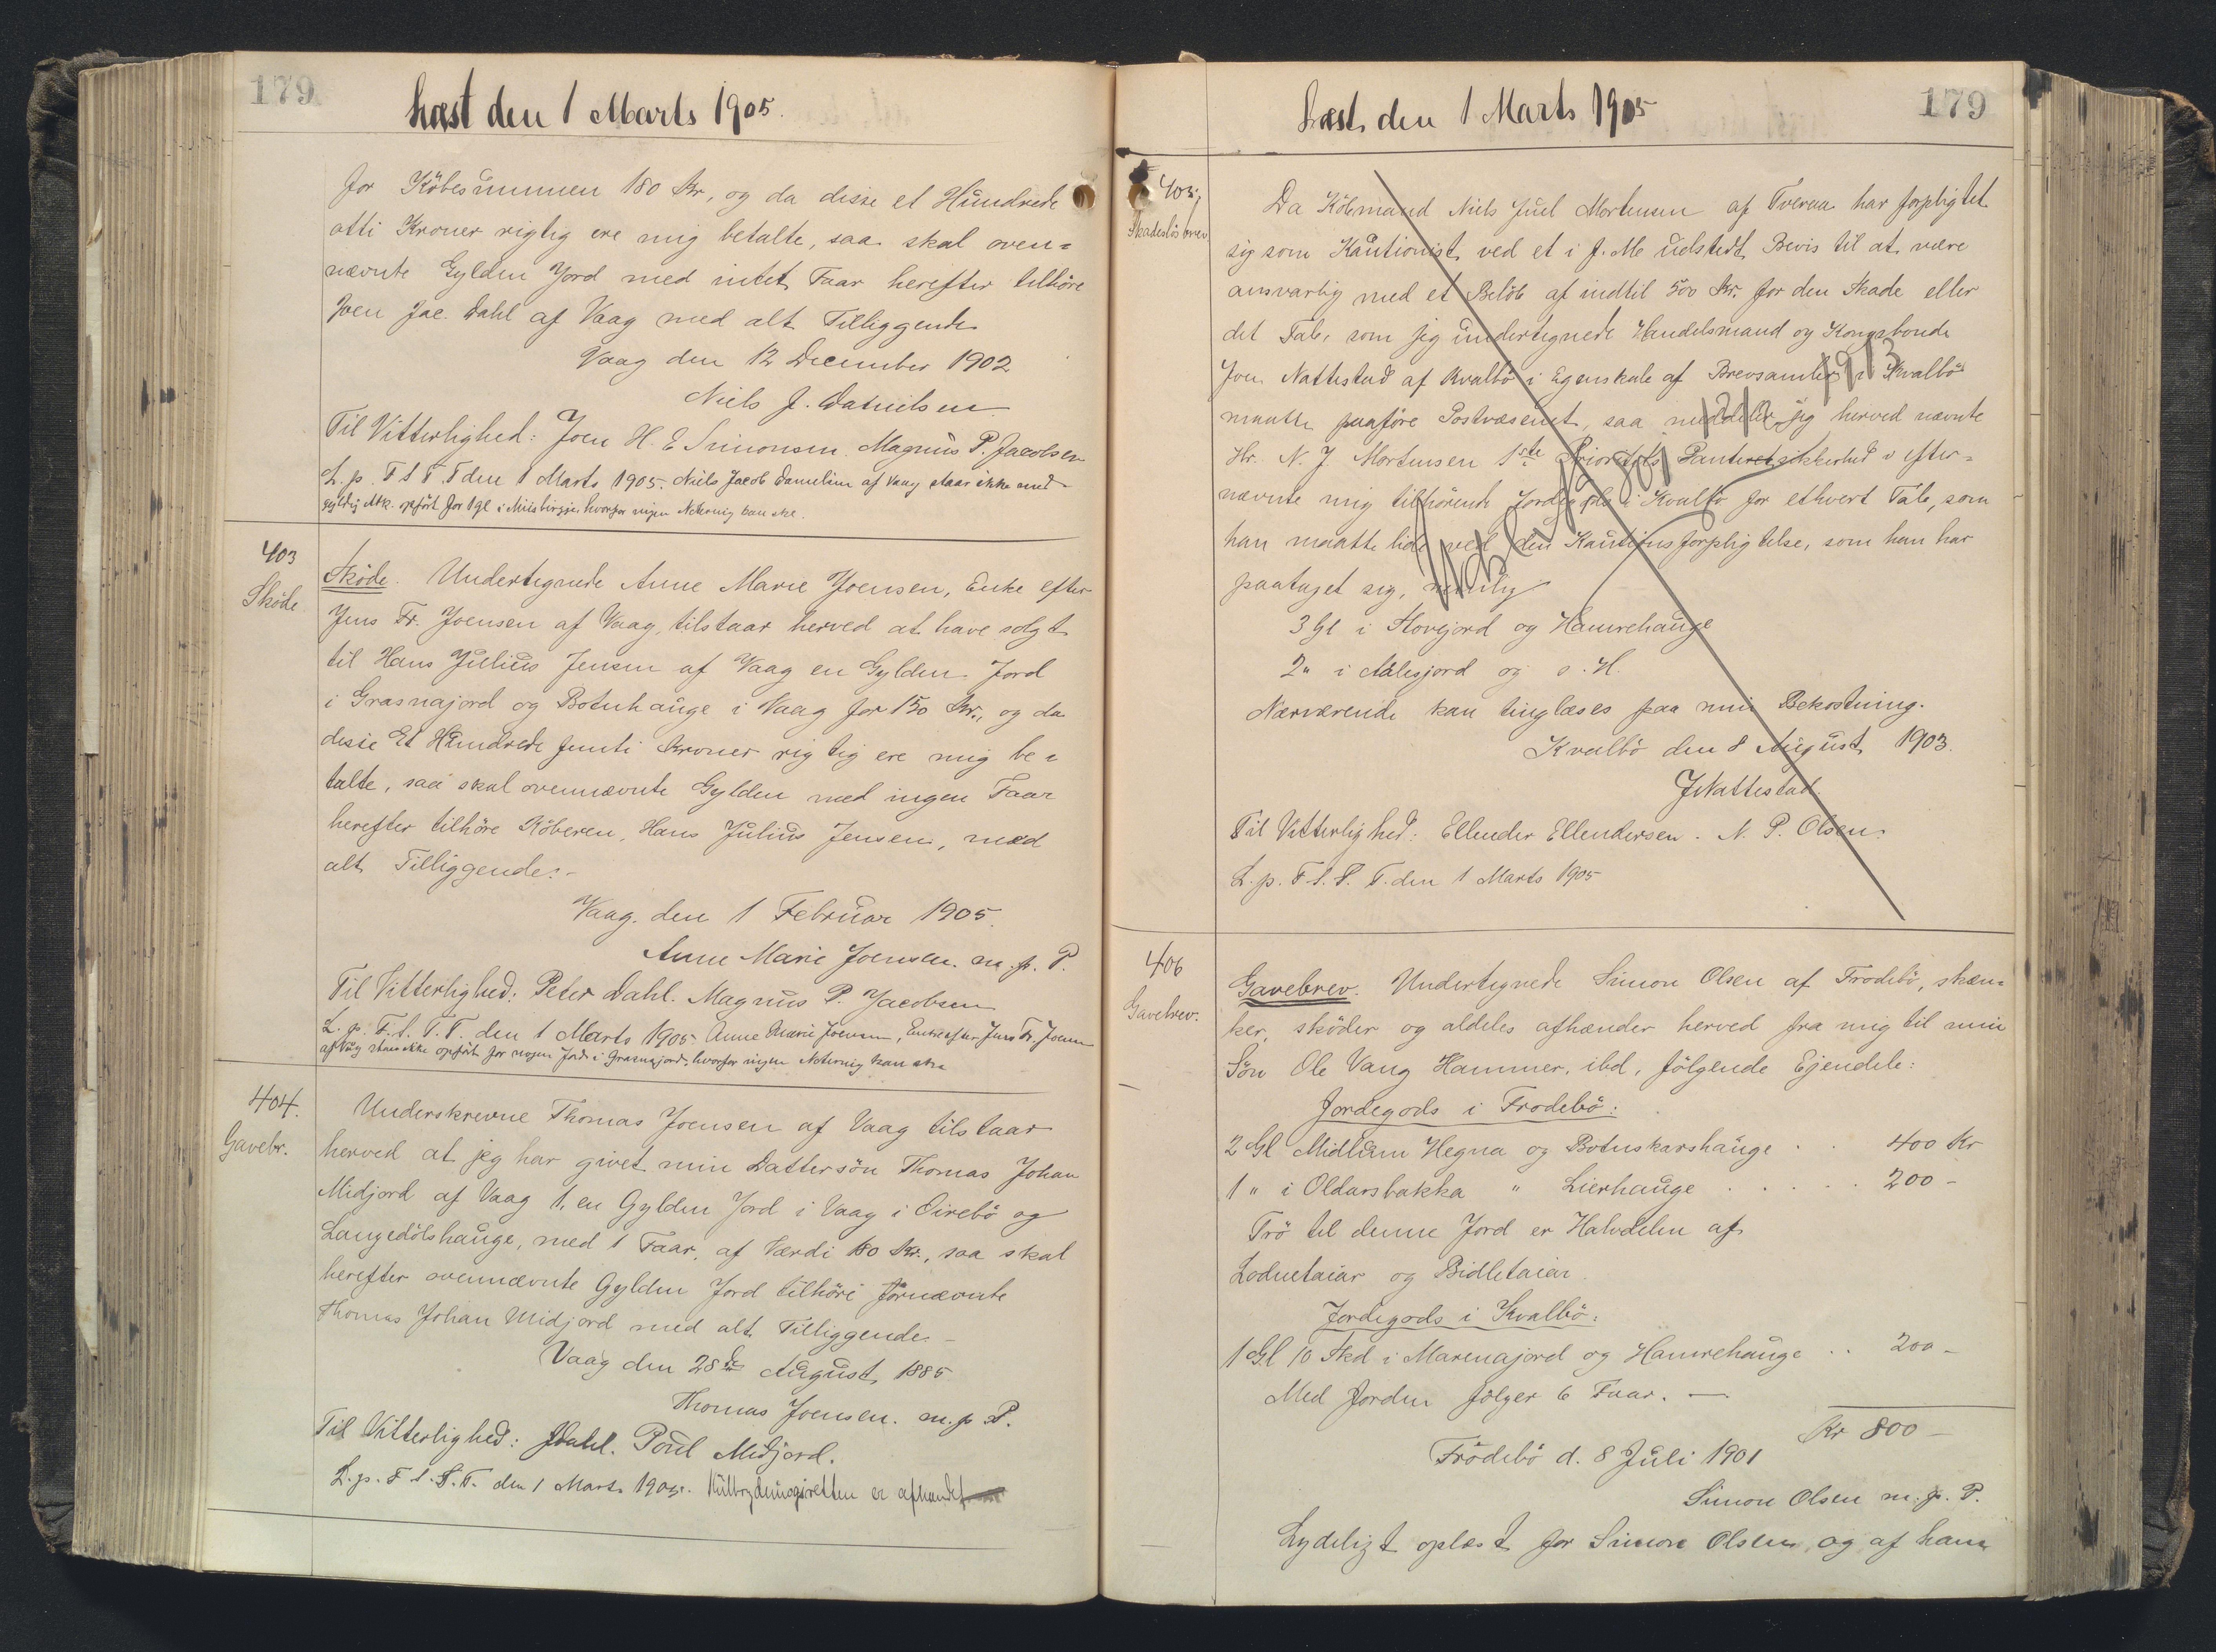 179
Læst den 1 Marts 1905.
for Köbesummen 180 Kr, og da disse et Hundrede
otti Kroner rigtig ere mig betalte, saa skal oven=
nævnte Gylden Jord med intet Faar herefter tilhöre
Joen Jac. Dahl af Vaag med alt Tilliggende
Vaag den 12 December 1902
Niels J. Danielsen
Til Vitterlighed: Joen H. E Simonsen. Magnus P. Jacobsen
L. p. F S T. T den 1 Marts 1905. Niels Jacob Danielsen af Vaag staar ikke med
gyldig Atk. opfört for 1 gl i hvorfor ingen Notering kan ske.
403
Sköde
Sköde. Undertegnede Anne Marie Joensen, Enke efter
Jens Fr. Joensen af Vaag, tilstaar herved at have solgt
til Hans Julius Jensen af Vaag en Gylden Jord
i Grasnajord og Botnhauge i Vaag for 150 Kr., og da
disse Et Hundrede femti Kroner rigtig ere mig be=
talte, saa skal ovennævnte Gylden med ingen Faar
herefter tilhöre Köberen, Hans Julius Jensen, med
alt Tilliggende.-
Vaag. den 1 Februar 1905.
Anne Marie Joensen. m. p. P.
Til Vitterlighed: Peter Dahl. Magnus P. Jacobsen
L. p. F. S. T. T. den 1 Marts 1905 Anne Marie Joensen, Enke efter Jens Fr. Joensen
af Vaag staar ikke opfört for nogen Jord i Grasnajord, hvorfor ingen Notering kan ske
404.
Gavebr.
Underskrevne Thomas Joensen af Vaag tilstaar
herved at jeg har givet min Dattersön Thomas Johan
Midjord af Vaag 1, en Gylden Jord i Vaag i Öirebö og
Langedölshauge, med 1 Faar, af Værdi 180 Kr., saa skal
herefter ovennævnte Gylden Jord tilhöre förnævnte
Thomas Johan Midjord med alt Tilliggende.-
Vaag den 28de August 1885
Thomas Joensen. m. p P.
Til Vitterlighed: JDahl. Poul Midjord.
L. p. F S. S. T. den 1 Marts 1905. er afhændet
179
Læst den 1 Marts 1905
405.
Skadeslösbrev.
Da Köbmand Niels Juel Mortensen af Tveraa har forpligtet
sig som Kautionist ved et i f. M. udstedt Bevis til at være
ansvarlig med et Belöb af indtil 500 Kr. for den Skade eller
det Tab, som jeg undertegnede Handelsmand og Kongsbonde
Joen Nattestad af Kvalbö i Egenskab af Brevsamler i Kvalbö
maatte paaföre Postvæsenet, saa meddeler jeg herved nævnte
Hr. N. J. Mortensen 1ste Prioritets Panteretsikkerhed i efter=
nævnte mig tilhörende Jordegods i Kvalbö for ethvert Tab, som
han maatte lide ved den Kautionsforpligtelse, som han har
paataget sig, nemlig
3 Gl i Hovejord og Hamrehauge
2 " i Aalesjord og s. H.
Nærværende kan tinglæses paa min Bekostning.
Kvalbö den 8 August 1903.
JNattestad.
Til Vitterlighed: Ellender Ellendersen. N. P. Olsen.
L. p. F. S. T. T. den 1 Marts 1905
406
Gavebrev.
Gavebrev. Undertegnede Simon Olsen af Frodebö, skæn=
ker, sköder og aldeles afhænder herved fra mig til min
Sön Ole Vang Hammer, ibd, fölgende Ejendele:
Jordegods i Frodebö:
2 Gl Midlum Hegna og Botnskarshauge . . 400 Kr
1 " i Oldarsbakka " Lierhauge . . . . . 200 -
Trö til denne Jord er Halvdelen af
Lodnetaiar og Bidletaiar.
Jordegods i Kvalbö:
1 Gl 10 Skd i Marenajord og Hamrehauge . . 200 -
Med Jorden fölger 6 Faar. —
Kr 800 -
Frödebö d. 8 Juli 1901
Simon Olsen m. p. P.
Lydeligt oplæst for Simon Olsen, og af ham